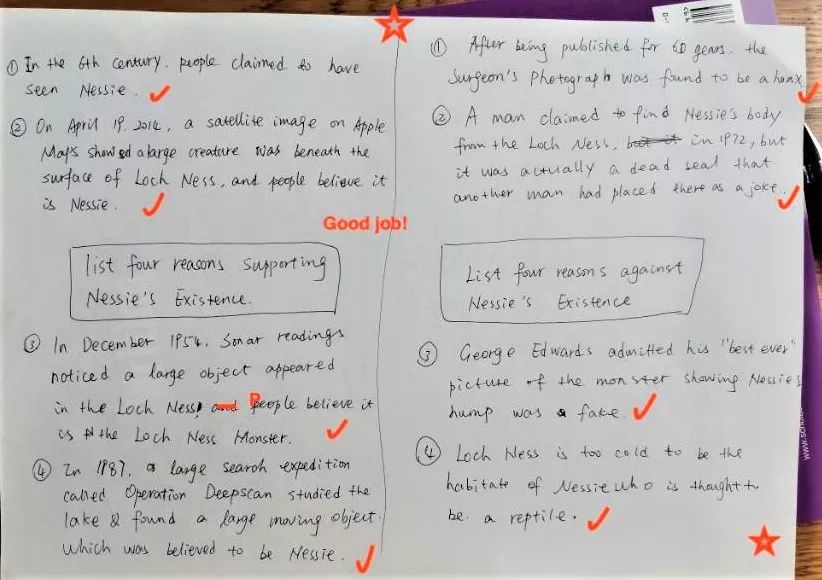 ① In the 6th century, people claimed to have
seen Nessie.
② On April 19, 2014, a satellite image on Apple
Maps showed a large creature was beneath the
surface of Loch Ness, and people believe it
is Nessie.
list four reasons supporting
Nessie's Existence.
③ In December 1954, Sonar readings
noticed a large object appeared
in the Loch Ness, and People believe it
is the Loch Ness Monster.
④ In 1987, a large search expedition
called Operation Deepscan studied the
lake & found a large moving object.
which was believed to be Nessie.
Good job!
① After being published for 60 years, the
Surgeon's Photograph was found to be a hoax.
② A man claimed to find Nessie's body
from the Loch Ness, but it in 1972, but
it was actually a dead seal that
another man had placed there as a joke.
List four reasons against
Nessie's Existence
③ George Edwards admitted his "best ever"
picture of the monster showing Nessie's
hump was a fake.
④ Loch Ness is too cold to be the
habitate of Nessie who is thought to
be a reptile.